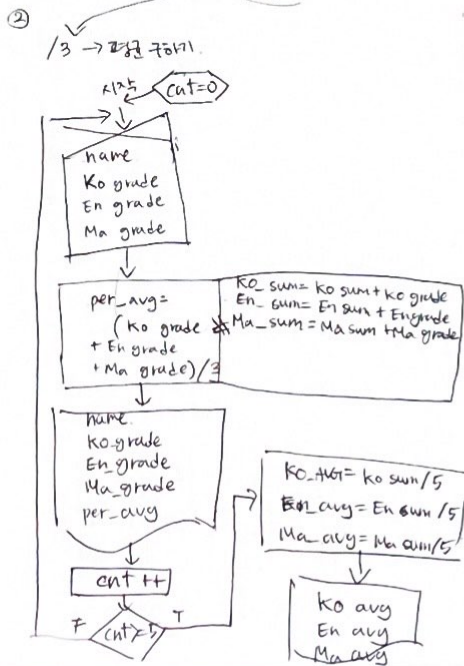 ②
/3 → 평균 구하기.
시작
cnt=0
name
Ko grade
En grade
Ma grade
per_avg=
(Ko grade
+ En grade
+ Ma grade)/3
Ko_sum= Ko sum + Ko grade
En_sum= En sum + En grade
Ma_sum = Ma sum + Ma grade
name.
Ko_grade
En_grade
Ma_grade
per_avg
cnt ++
F
cnt>=5
T
KO_AVG= Ko sum/5
En_avg= En sum/5
Ma_avg= Ma sum/5
Ko avg
En avg
Ma avg